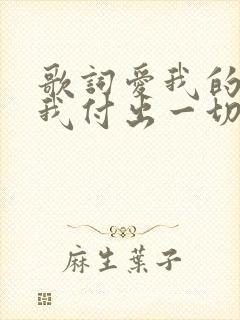 歌詞愛我的
我付出一切
麻生葉子